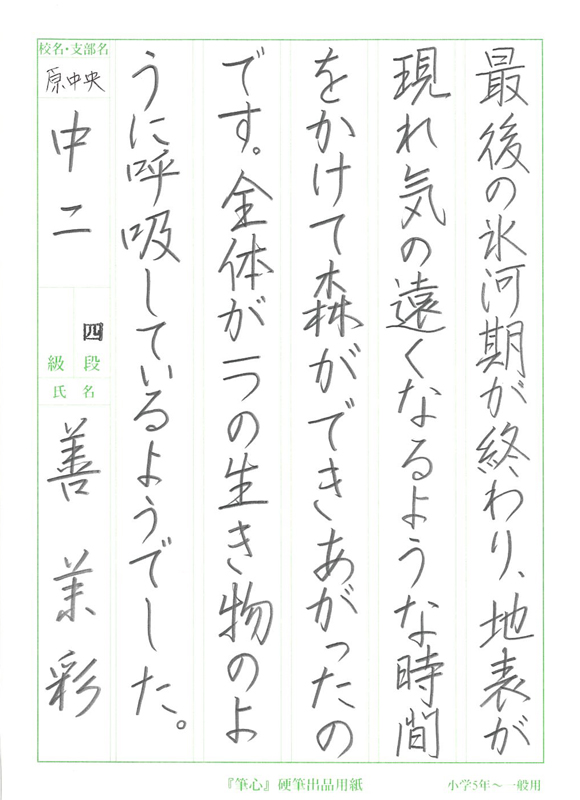 最後の氷河期が終わり、地表が
現れ気の遠くなるような時間
をかけて森ができあがったの
です。全体が一つの生き物のよ
うに呼吸しているようでした。
校名・支部名
原中央
中二
四
級 段
氏 名
善 茉彩
『筆心』硬筆出品用紙
小学5年～一般用